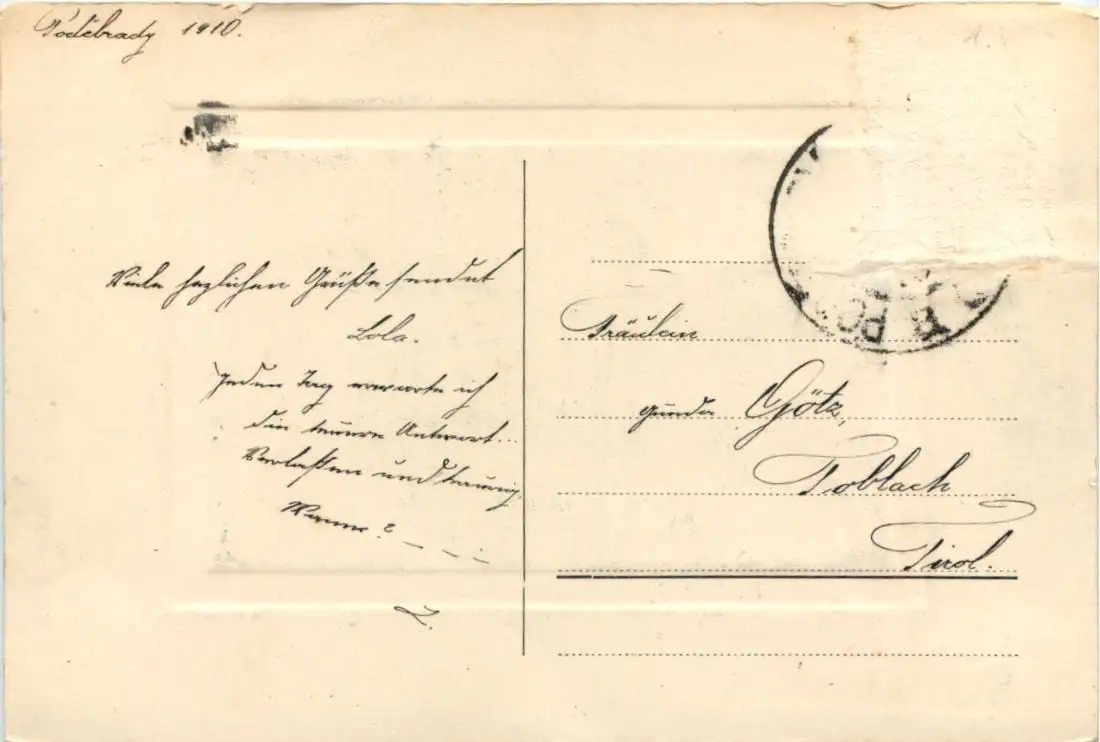 Poděbrady 1910.
Viele herzlichen Grüße sendet
Lola.
Jeden Tag erwarte ich
die teuere Antwort...
Verlaßen und traurig.
Wann?
L.
Fräulein
Gunda Götz,
Toblach
Tirol.